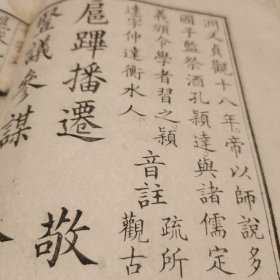 洲又貞觀十八年。帝以師說多
國子監祭酒孔穎達與諸儒定
義頒令學者習之。穎
達字仲達衡水人。
音註
疏所
觀古
扈蹕播遷 敬
豎議參謀